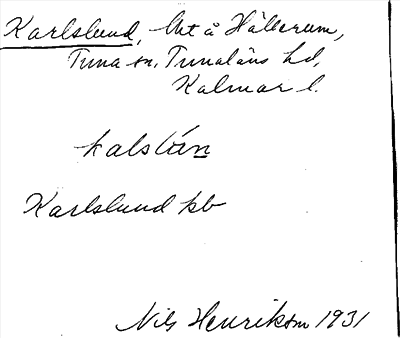 Karlslund, lht å Hällerum,
Tuna sn, Tunaläns hd,
Kalmar l.
kalslún
Karlslund kb
Nils Henrikson 1931